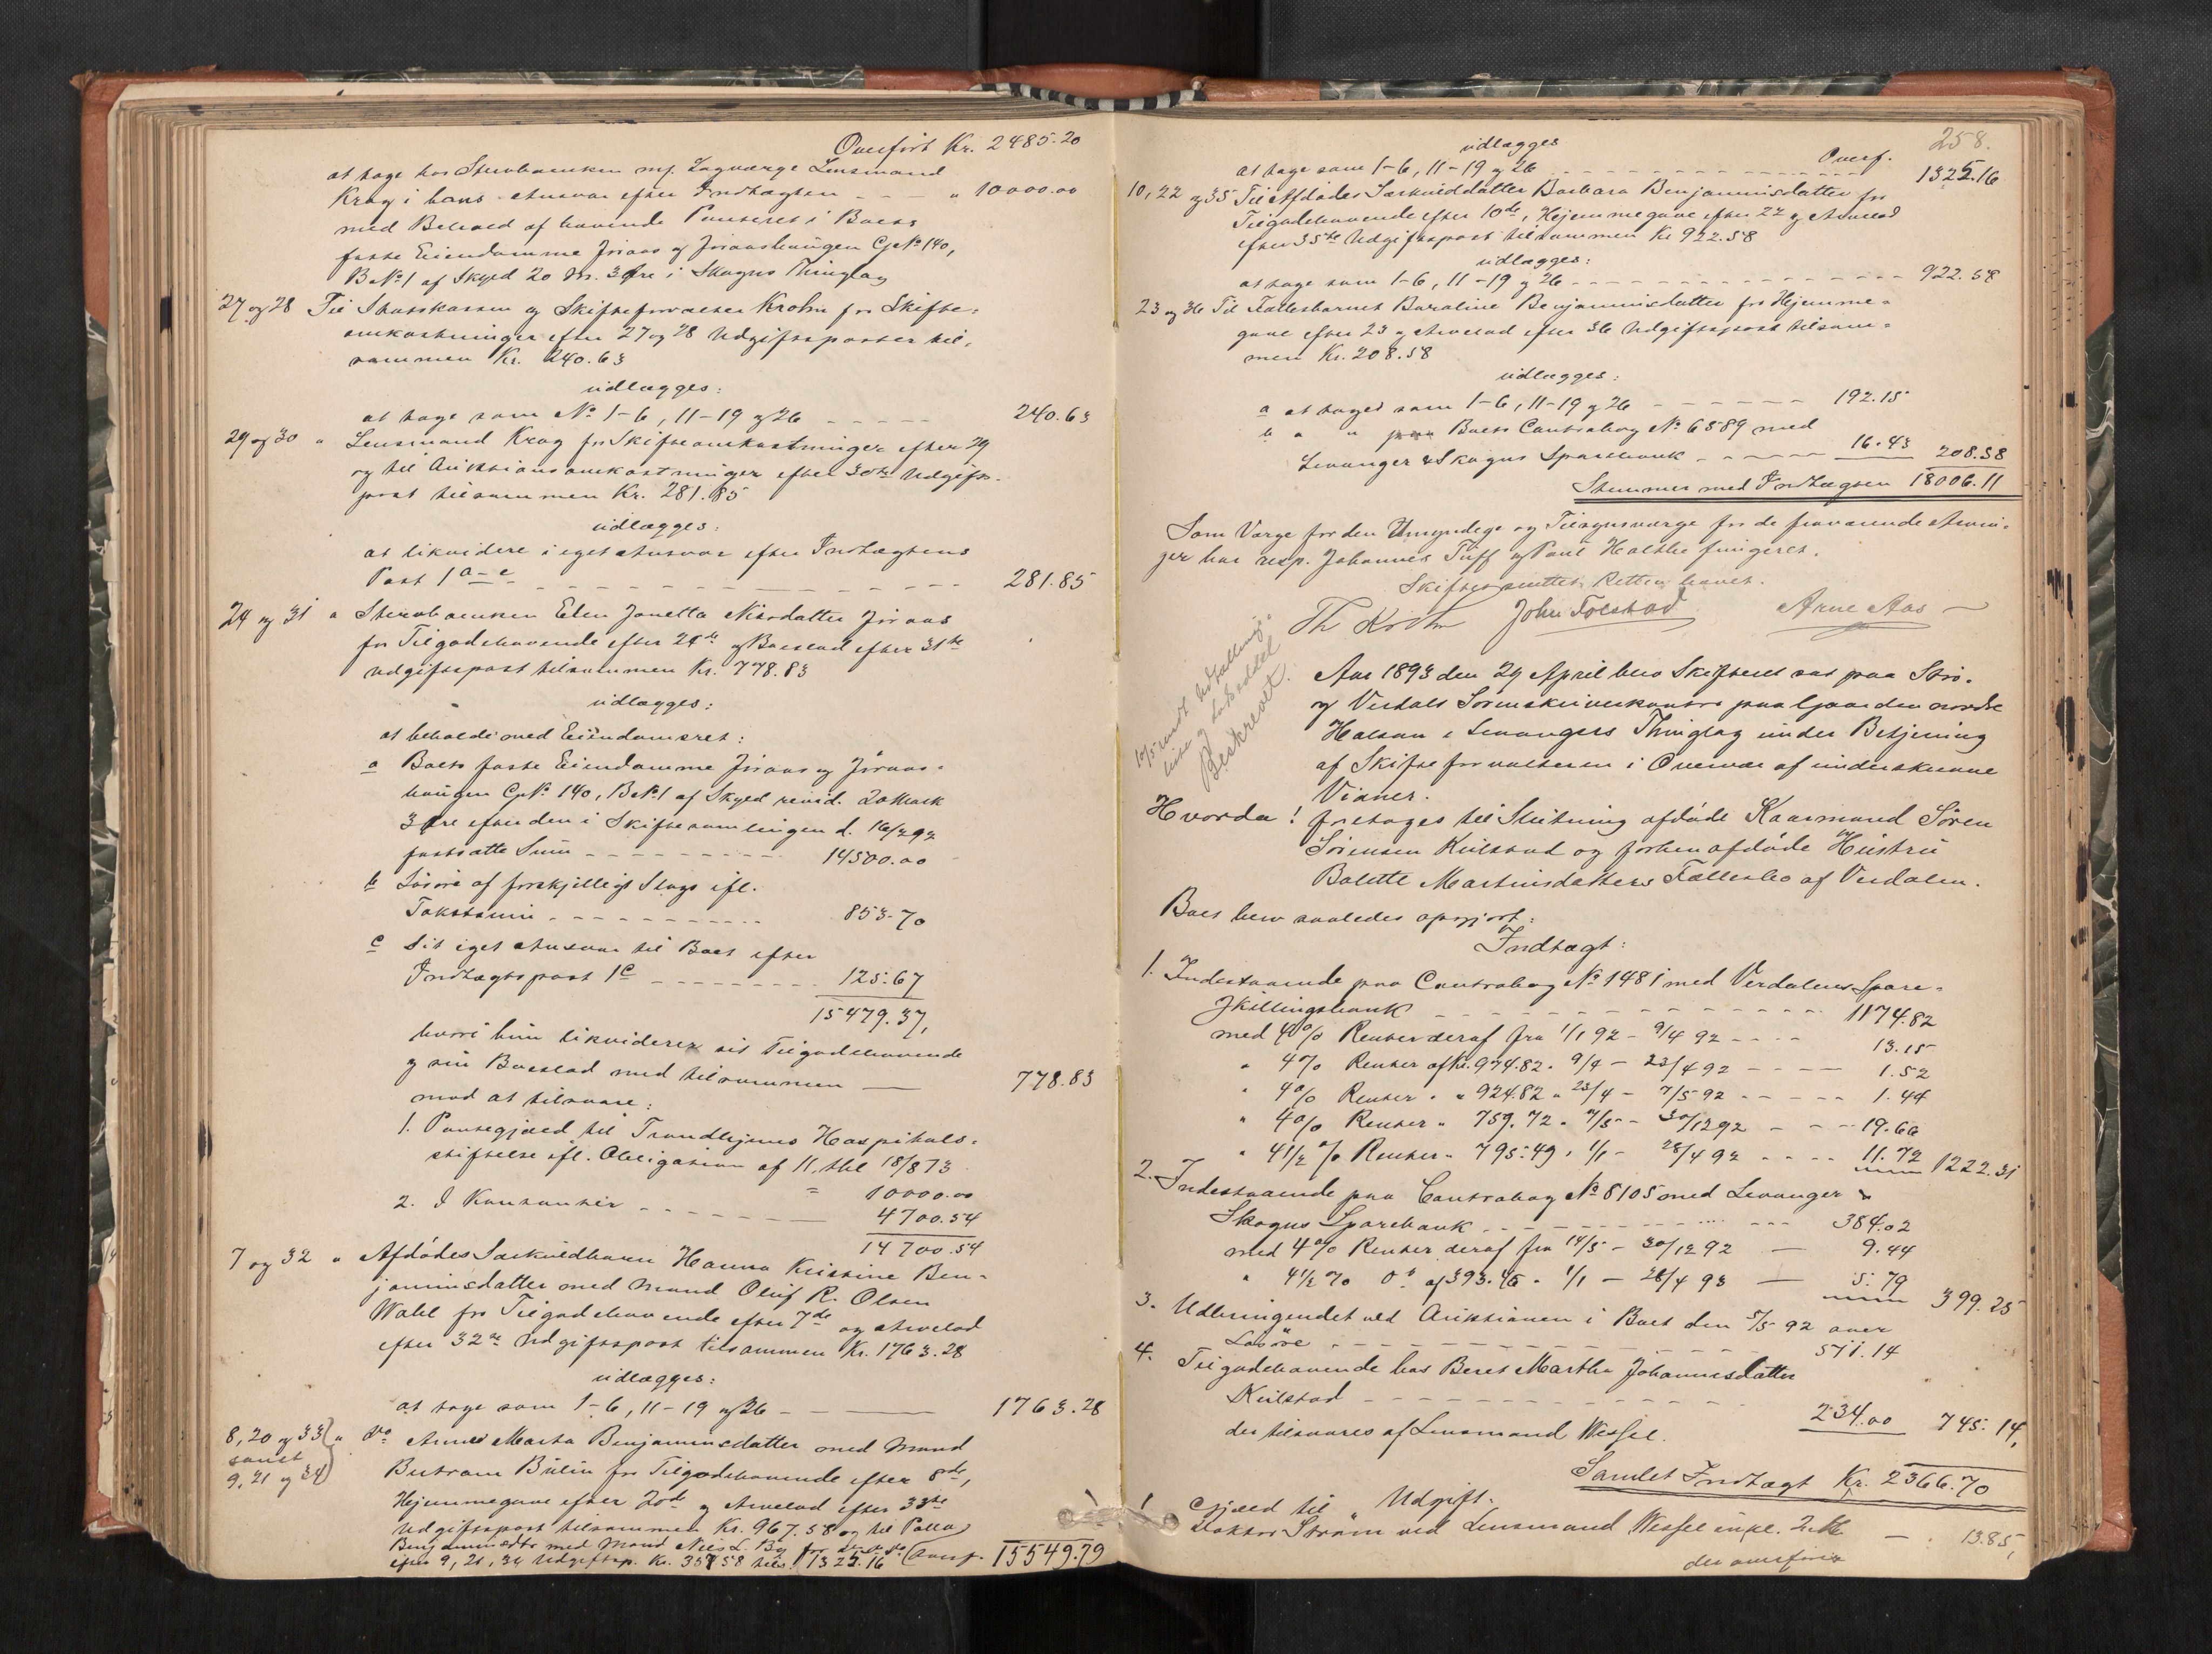 Overført Kr. 2485.20
at tage hos Stervboenken m/ Lagværge Lensmand
Krag i hans Ansvar efter Indtægten - - - " 10000.00
med Behold af havende Panteret i Boets
faste Eiendomme Jøraas og Jøraashaugen G.No 140,
B.No 1 af Skyld 20 M. 3 Øre i Skogns Thinglag
27 og 28 Til Statskassen og Skifteforvalter Krohn for Skifte-
omkostninger efter 27 og 28 Udgiftsposter til-
sammen Kr. 240.63
udlægges:
at tage som No 1-6, 11-19 og 26 - - - - - 240.63
29 og 30 " Lensmand Krag for Skifteomkostninger efter 29
og til Auktionsomkostninger efter 30te Udgifts-
post tilsammen Kr. 281.85
udlægges:
at likvidere i eget Ansvar efter Indtægtens
Post 1 a-c - - - - - - - - - - 281.85
24 og 31 " Stervboenken Elen Janetta Nilsdatter Jøraas
for Tilgodehavende efter 24de og Boeslod efter 31te
Udgiftspost tilsammen Kr. 778.83
udlægges:
at beholde med Eiendomsret:
a Boets faste Eiendomme Jøraas og Jøraas-
haugen G.No 140, B.No 1 af Skyld revid. 20 Mark
3 Øre efter den i Skiftesamlingen d. 16/2 92
fastsatte Sum - - - - - - - 14500.00
b Løsøre af forskjelligt Slags ifl.
Takstsum - - - - - - - - 853.70
c Sit eget Ansvar til Boet efter
Indtægtspost 1 c - - - - - - 125.67
15479.37,
hvori hun likviderer sit Tilgodehavende
og sin Boeslod med tilsammen — 778.83
mod at tilsvare:
1. Pantegjæld til Trondhjems Hospitals-
stiftelse ifl. Obligation af 11, thl 18/8 73
= 10000.00
2. I Kontanter - - - - - 4700.54
14700.54
7 og 32 " Afdødes Særkuldbarn Hanna Kristine Ben-
jaminsdatter med Mand Oluf R. Olsen
Wahl for Tilgodehavende efter 7de og Arvelod
efter 32te Udgiftspost tilsammen Kr. 1763.28
udlægges:
at tage som 1-6, 11-19 og 26 - — 1763.28
8, 20 og 33 " Do Anne Marta Benjaminsdatter med Mand
samt
9, 21 og 34
Butram Bülin for Tilgodehavende efter 8de,
Hjemmegave efter 20de og Arvelod efter 33te
Udgiftspost tilsammen Kr. 967.58 og til Palla
Benjaminsdtr med Mand Nils L. By for do do do
efter 9, 21, 34 Udgiftsp. Kr. 357.58 tils. 1325.16 Overf. 15549.79
258.
udlægges Overf.
at tage som 1-6, 11-19 og 26 - - - - - - - - 1325.16
10, 22 og 35 Til Afdødes Særkulddatter Barbara Benjaminsdatter for
Tilgodehavende efter 10de, Hjemmegave efter 22 og Arvelod
efter 35te Udgiftspost tilsammen Kr 922.58
udlægges:
at tage som 1-6, 11-19 og 26 - - - - - - - - 922.58
23 og 36 Til Fællesbarnet Buraline Benjaminsdatter for Hjemme-
gave efter 23 og Arvelod efter 36 Udgiftspost tilsam-
men Kr. 208.58
udlægges:
a at tages som 1-6, 11-19 og 26 - - - - - - 192.15
b " " paa Boets Contrabog No 6589 med
Levanger & Skogns Sparebank - - - - - 16.43 208.58
Stemmer med Indtægten 18006.11
Som Værge for den Umyndige og Tilsynsværge for de fraværende Arvin-
ger har resp. Johannes Tuff og Paul Halthe fungeret.
Skiftet sluttet. Retten hævet.
Th Krohn John Tolstad Arne Aas
10/5 sendt Udtællings-
liste og
Beskrevet.
Aar 1893 den 29 April blev Skifteret sat paa Stør-
og Verdals Sorenskriverkontor paa Gaarden nordre
Halsan i Levangers Thinglag under Betjening
af Skifteforvalteren i Overvær af underskrevne
Vidner.
Hvorda! foretages til Slutning afdøde Kaarmand Søren
Sørensen Kulstad og forhen afdøde Hustru
Bolette Martinsdatters Fællesbo af Verdalen.
Boet blev saaledes opgjort:
Indtægt:
1. Indestaaende paa Contrabog No 1481 med Verdalens Spare-
skillingsbank - - - - - - - - - 1174.82
med 4% Renter deraf fra 1/1 92 - 9/4 92 - - - - 13.15
" 4% Renter af Kr. 974.82 " 9/4 - 23/4 92 - - - - 1.52
" 4% Renter " " 924.82 " 23/4 - 7/5 92 - - - - - 1.44
" 4% Renter " 759.72 " 7/5 - 30/12 92 - - - 19.66
" 4 1/2 % Renter " 795.49 " 1/1 - 28/4 92 - - - - 11.72 1222.31
2. Indestaaende paa Contrabog No 8105 med Levanger &
Skogns Sparebank - - - - - - - - - 384.02
med 4% Renter deraf fra 14/5 - 30/12 92 — 9.44
" 4 1/2 % Do af 393.46 " 1/1 - 28/4 93 — 5.79 399.25
3. Udbringendet ved Auktionen i Boet den 5/5 92 over
Løsøre - - - - - - - - - - 511.14
4. Tilgodehavende hos Beret Martha Johannesdatter
Kulstad - - - - - - - - - - 234.00 745.14,
der tilsvares af Lensmand Wessel.
Samlet Indtægt Kr. 2366.70
Udgift.
1 Gjæld til
Doktor Strøm ved Lensmand Wessel inkl. — 13.85,
der overføres